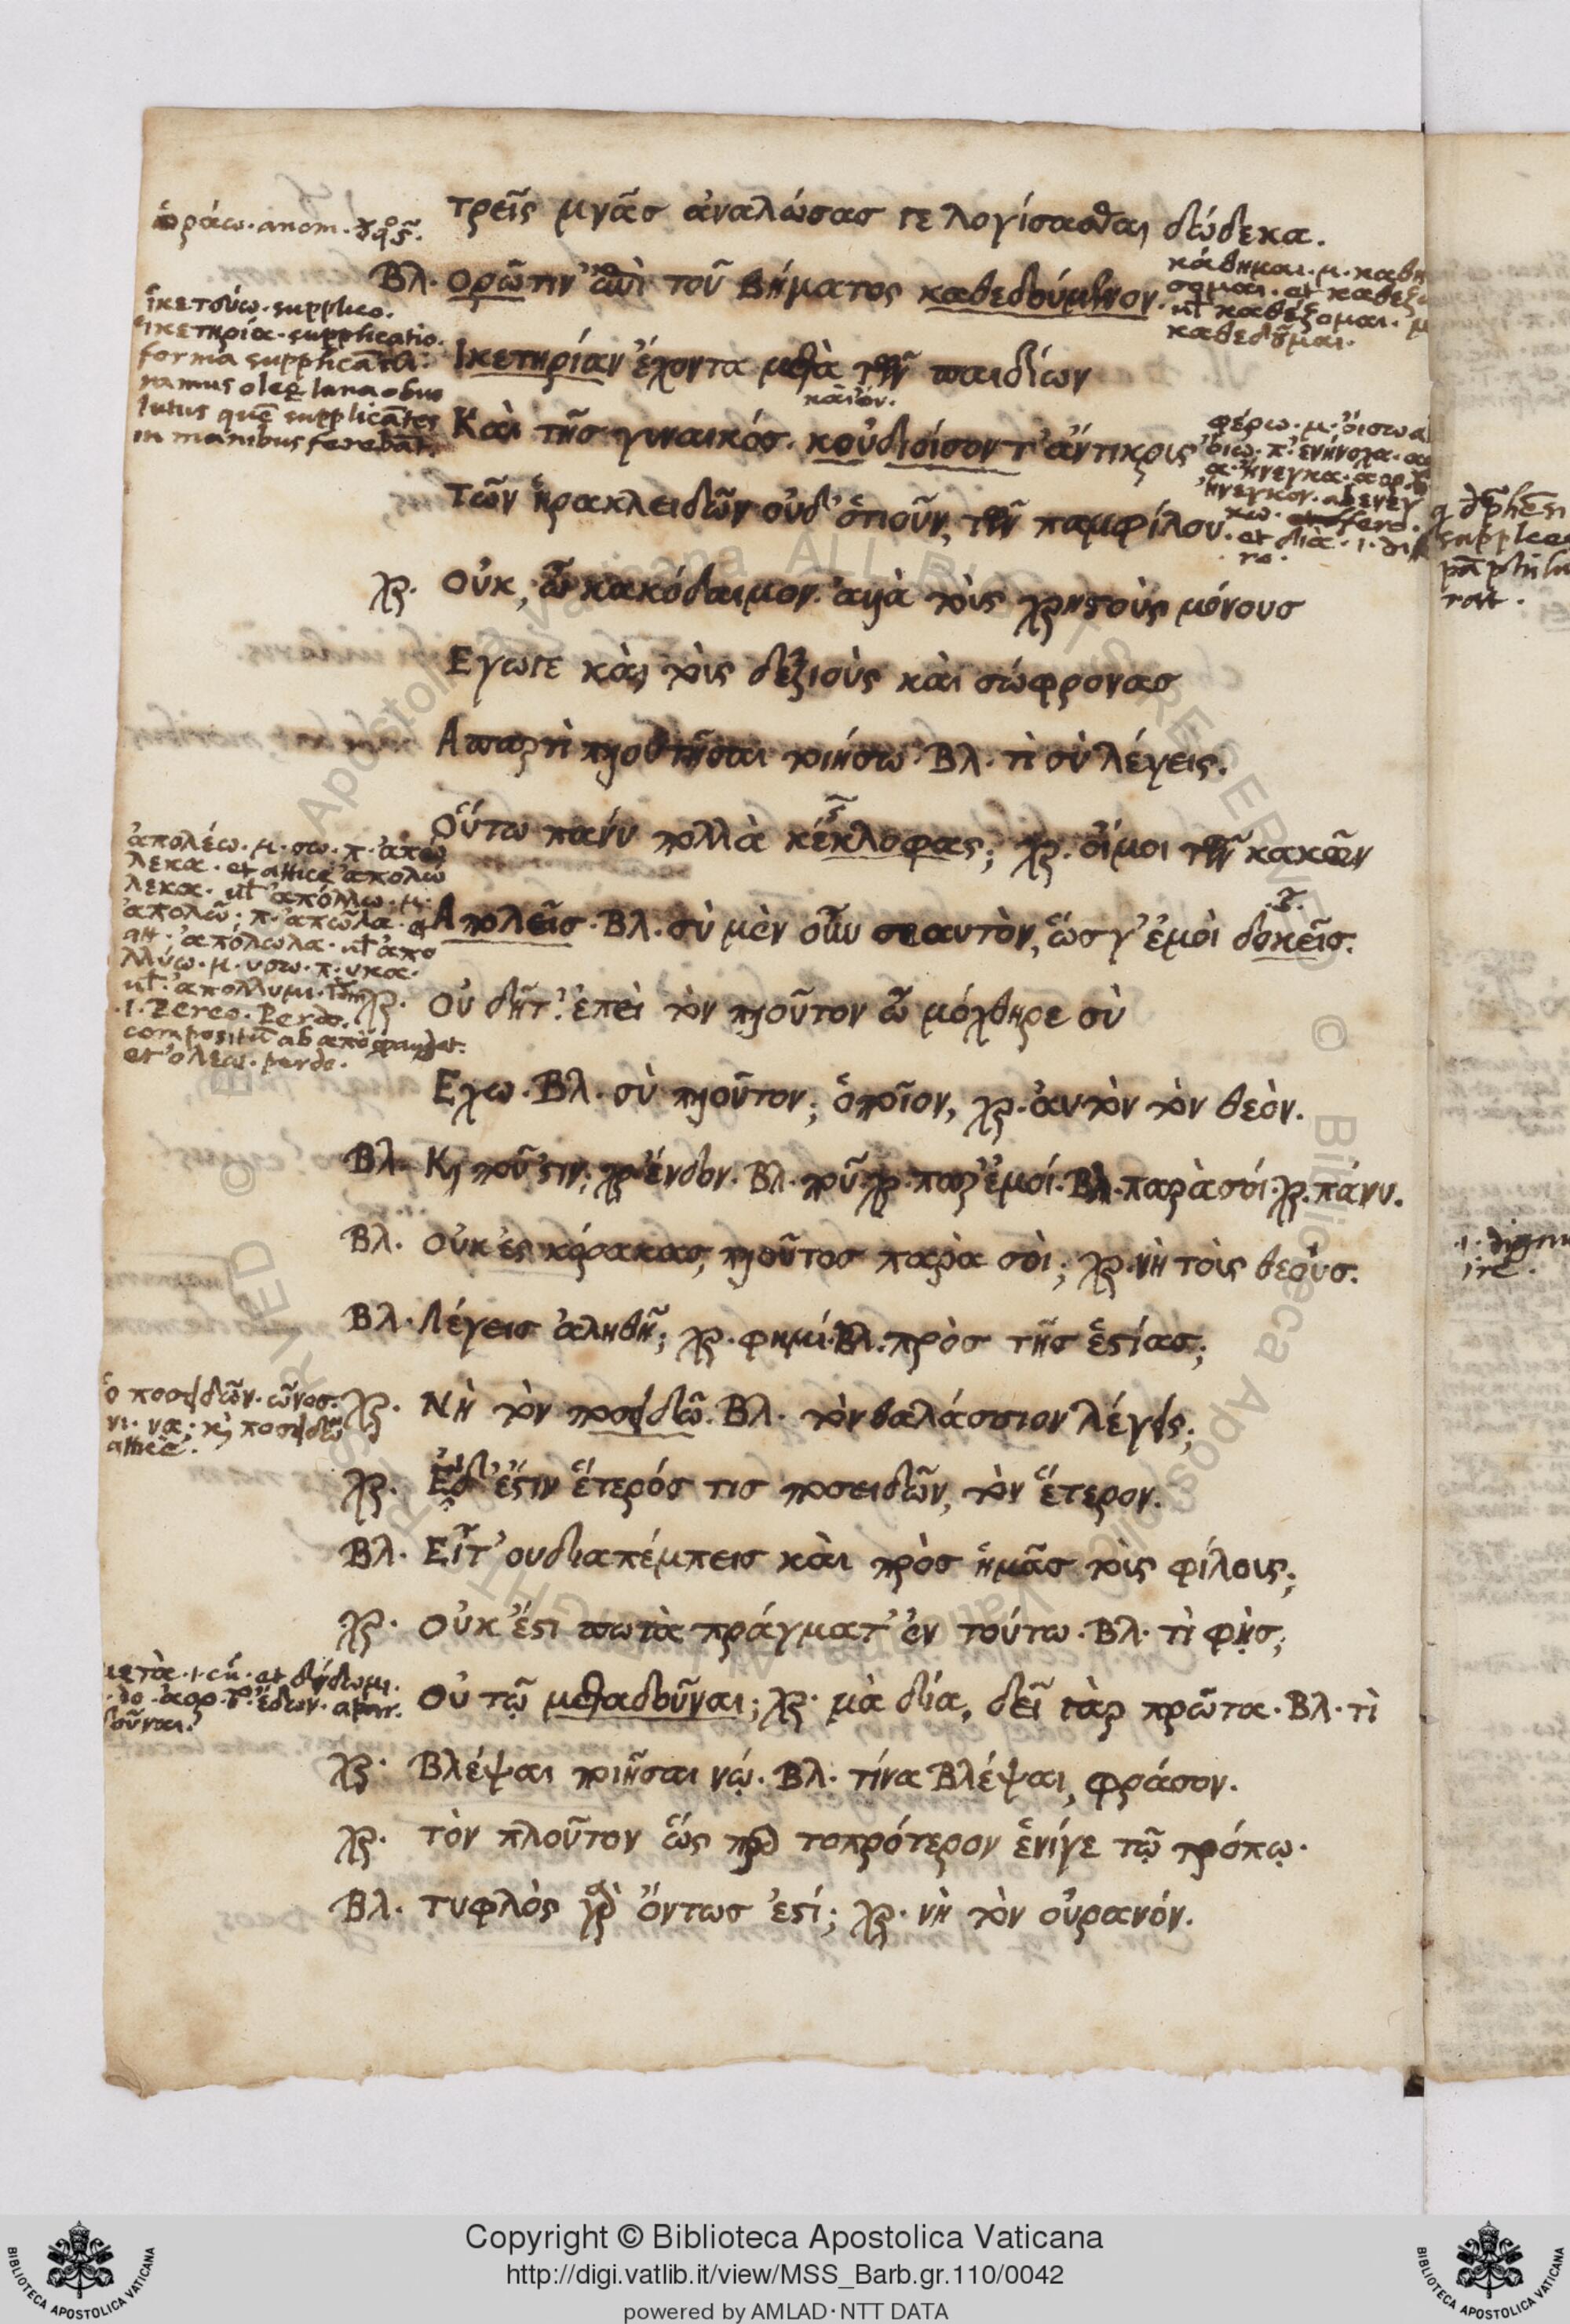 τρεῖς μνᾶσ ἀναλώσασ γε λογίσασθαι δώδεκα.
ὁράω. anom.
Βλ. ορῶ τιν' ἐπὶ τοῦ βήματος καθεδούμενον.
κάθημαι. μ. καθη
σομαι. et καθεζο
ut καθέζομαι. μ
καθεδοῦμαι.
ἱκετεύω. supplico.
ἱκετηρία. supplicatio.
forma supplicandi:
ramus oleę lana obuo
lutus quẽ supplicãtes
in manibus ferebãt.
Ἱκετηρίαν ἔχοντα μετὰ τῶν παιδίων
Καὶ τῆσ γυναικόσ. κοὐ διοίσοντ' ἄντικρις
φέρω. μ. οἴσω
τῶν ἡρακλειδῶν οὐδ' ὁτιοῦν, τῶν παμφίλου.
et διὰ. i. dif
χρ. οὐκ, ὦ κακόδαιμον. ἀλλὰ τοὺς χρηστοὺς μόνουσ
Εγωγε καὶ τοὺς δεξιοὺς καὶ σώφρονασ
Απαρτὶ πλουτῆσαι ποιήσω. Βλ. τὶ σὺ λέγεις.
Οὕτω πάνυ πολλὰ κέκλοφας; χρ. οἴμοι τῶν κακῶν
ἀπολέω. μ. σω. π. ἀπώ
λεκα. et atticè ἀπολώ
λεκα. ut ἀπόλλω. μ.
ἀπολῶ; π. ἀπῶλα. et
att. ἀπόλωλα. ut ἀπο
λλύω. μ. υσω. π. υκα.
ut. ἀπόλλυμι.
.i. Pereo. Perdo.
compositũ ab ἀπὸ
et ὀλέω. perdo.
Απολεῖσ. Βλ. σὺ μὲν οὖν σεαυτὸν, ὥσ γ' ἐμοὶ δοκεῖσ.
χρ. Οὐ δῆτ'. ἐπεὶ τὸν πλοῦτον ὦ μόχθηρε σὺ
Εχω. Βλ. σὺ πλοῦτον; ὁποῖον, χρ. ἀυτὸν τὸν θεὸν.
Βλ. Κὶ ποῦ 'στιν; χρ. ἔνδον. Βλ. ποῦ. χρ. παρ' ἐμοί. Βλ. παρὰ σοί. χρ. πάνυ.
Βλ. οὐκ ἐς κόρακασ, πλοῦτοσ παρὰ σὸι; χρ. νὴ τοὺς θεοὺσ.
Βλ. λέγεισ ἀληθῆ; χρ. φημί. Βλ. πρὸσ τῆσ ἑστίασ;
ὁ ποσειδῶν. ῶνοσ.
νι. να; καὶ ποσειδῶ
atticè.
χρ. Νὴ τὸν ποσειδῶ. Βλ. τὸν θαλάσσιον λέγεις;
χρ. Εἰ δ' ἔστιν ἕτερόσ τισ ποσειδῶν, τὸν ἕτερον.
Βλ. Εἶτ' ου διαπέμπεισ καὶ πρὸσ ἡμᾶσ τοὺς φίλους;
χρ. οὐκ ἔστι πω τὰ πράγματ' ἐν τούτω. Βλ. τὶ φῂσ;
Οὐ τῷ μεταδοῦναι; χρ. μὰ δία, δεῖ γὰρ πρῶτα. Βλ. τὶ
χρ. Βλέψαι ποιῆσαι νώ. Βλ. τίνα βλέψαι, φράσον.
χρ. τὸν πλοῦτον ὥς τοπρότερον ἑνίγε τῷ τρόπῳ.
Βλ. τυφλὸς γὰρ ὄντωσ ἐστί; χρ. νὴ τὸν οὐρανόν.
Copyright © Biblioteca Apostolica Vaticana
http://digi.vatlib.it/view/MSS_Barb.gr.110/0042
powered by AMLAD·NTT DATA
BIBLIOTECA APOSTOLICA VATICANA
BIBLIOTECA APOSTOLICA VATICANA